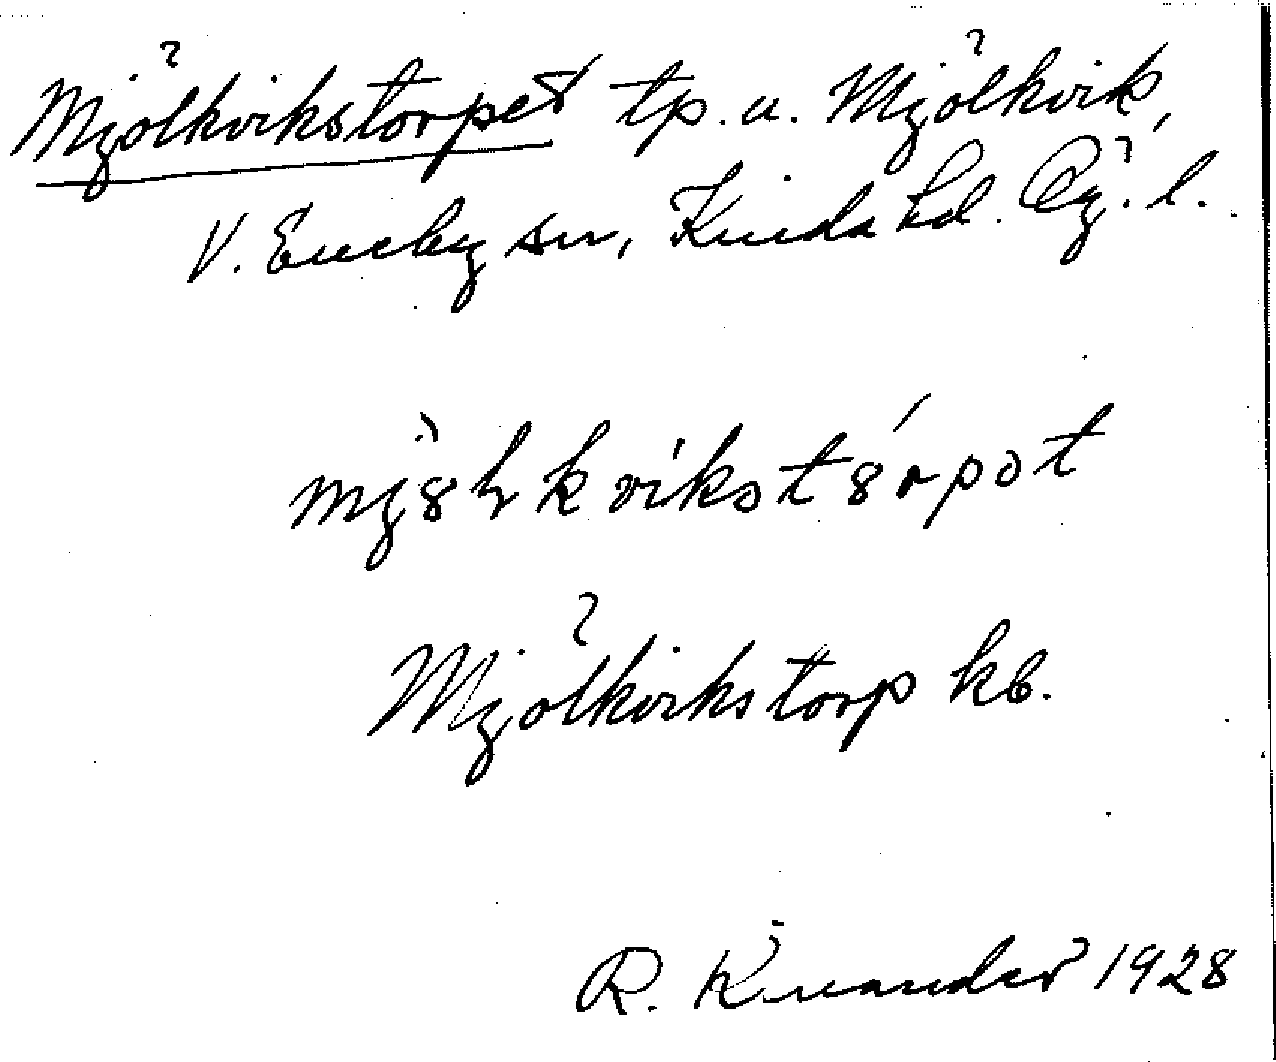 Mjölkvikstorpet tp. u. Mjölkvik,
V. Eneby sn, Kinda hd. Ög. l.
Mjölkvikstorp kb.
R. Kinander 1928